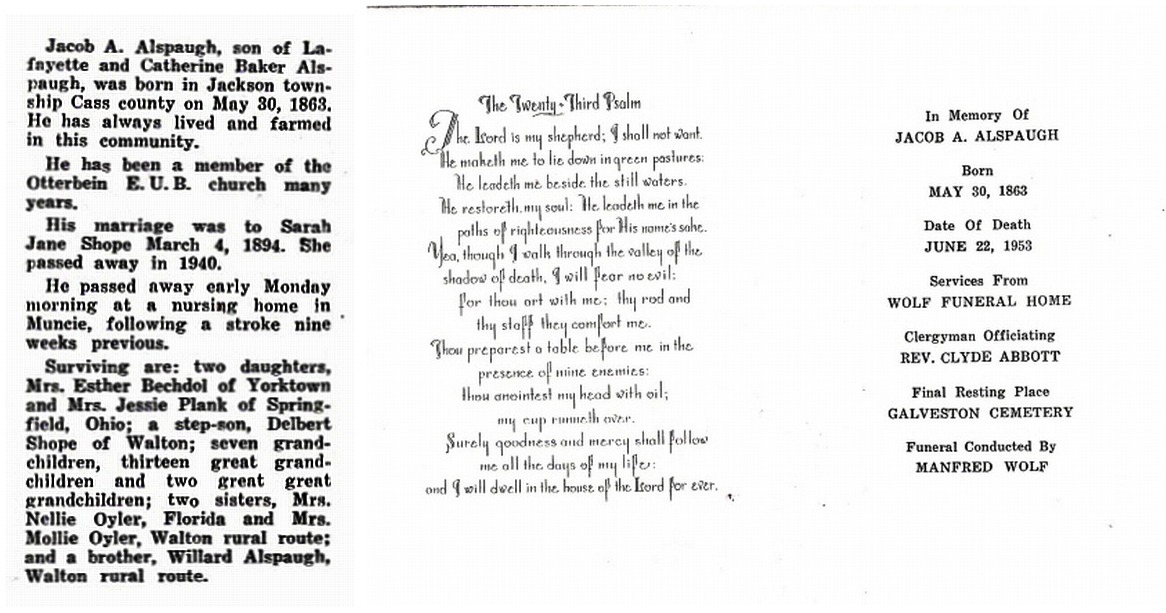 Jacob A. Alspaugh, son of La-
fayette and Catherine Baker Als-
paugh, was born in Jackson town-
ship Cass county on May 30, 1863.
He has always lived and farmed
in this community.
He has been a member of the
Otterbein E. U. B. church many
years.
His marriage was to Sarah
Jane Shope March 4, 1894. She
passed away in 1940.
He passed away early Monday
morning at a nursing home in
Muncie, following a stroke nine
weeks previous.
Surviving are: two daughters,
Mrs. Esther Bechdol of Yorktown
and Mrs. Jessie Plank of Spring-
field, Ohio; a step-son, Delbert
Shope of Walton; seven grand-
children, thirteen great grand-
children and two great great
grandchildren; two sisters, Mrs.
Nellie Oyler, Florida and Mrs.
Mollie Oyler, Walton rural route;
and a brother, Willard Alspaugh,
Walton rural route.
The Twenty-Third Psalm
The Lord is my shepherd; I shall not want.
He maketh me to lie down in green pastures:
He leadeth me beside the still waters.
He restoreth my soul: He leadeth me in the
paths of righteousness for His name's sake.
Yea, though I walk through the valley of the
shadow of death, I will fear no evil:
for thou art with me; thy rod and
thy staff they comfort me.
Thou preparest a table before me in the
presence of mine enemies:
thou anointest my head with oil;
my cup runneth over.
Surely goodness and mercy shall follow
me all the days of my life:
and I will dwell in the house of the Lord for ever.
In Memory Of
JACOB A. ALSPAUGH
Born
MAY 30, 1863
Date Of Death
JUNE 22, 1953
Services From
WOLF FUNERAL HOME
Clergyman Officiating
REV. CLYDE ABBOTT
Final Resting Place
GALVESTON CEMETERY
Funeral Conducted By
MANFRED WOLF